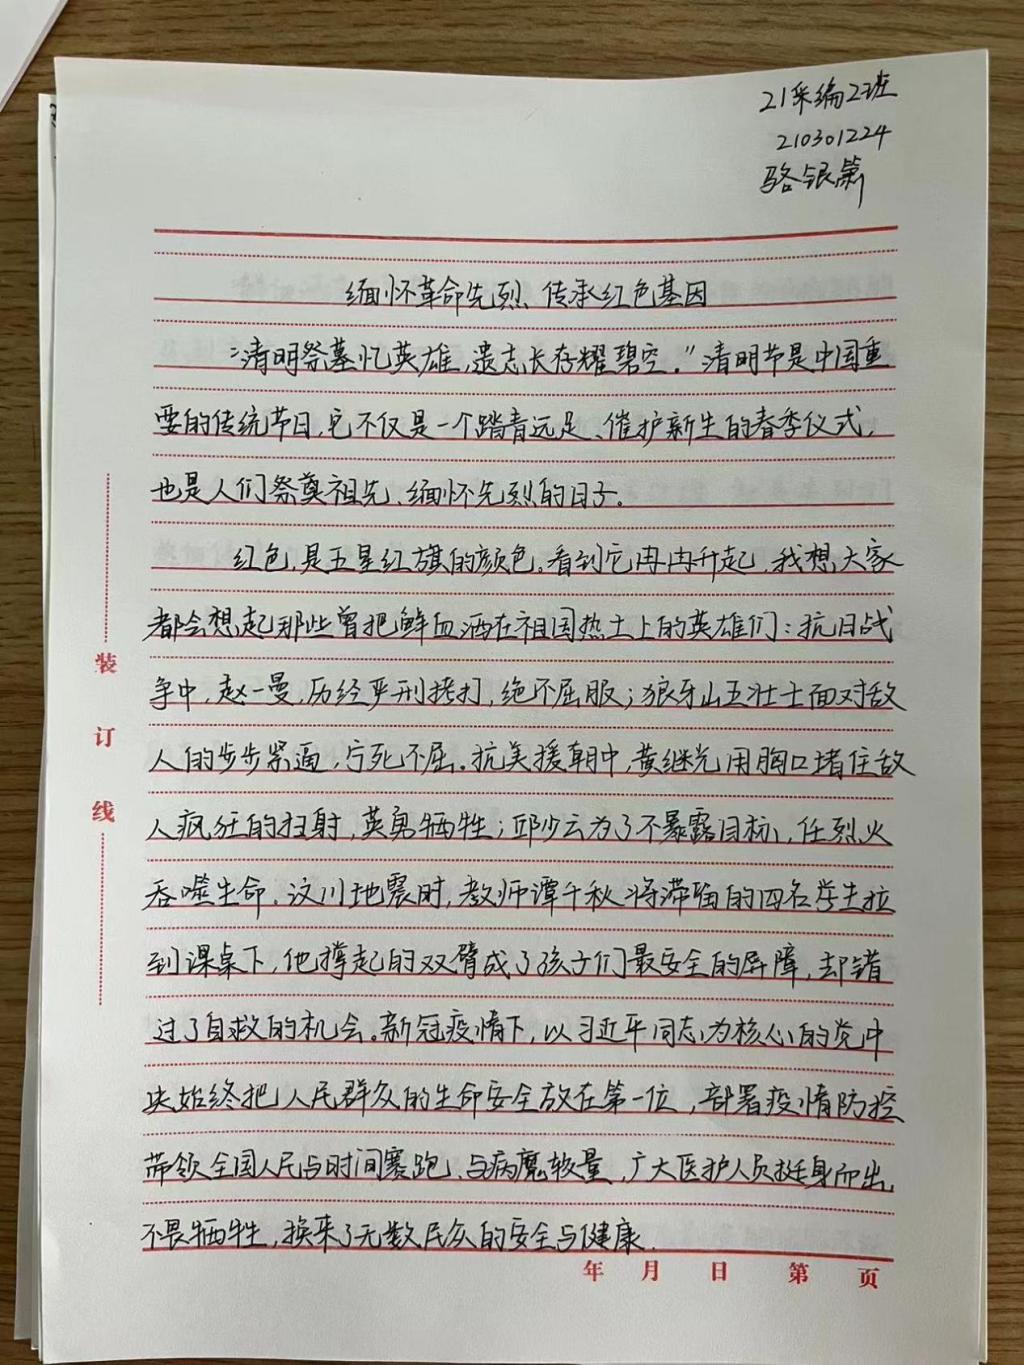 21采编2班
210301224
骆银箫
缅怀革命先烈、传承红色基因
“清明祭墓忆英雄,遗志长存耀碧空。”清明节是中国重
要的传统节日,它不仅是一个踏青远足、催护新生的春季仪式,
也是人们祭奠祖先、缅怀先烈的日子。
红色,是五星红旗的颜色。看到它冉冉升起,我想大家
都会想起那些曾把鲜血洒在祖国热土上的英雄们:抗日战
争中,赵一曼,历经严刑拷打,绝不屈服;狼牙山五壮士面对敌
人的步步紧逼,宁死不屈。抗美援朝中,黄继光用胸口堵住敌
人疯狂的扫射,英勇牺牲;邱少云为了不暴露目标,任烈火
吞噬生命。汶川地震时,教师谭千秋将滞留的四名学生拉
到课桌下,他撑起的双臂成了孩子们最安全的屏障,却错
过了自救的机会。新冠疫情下,以习近平同志为核心的党中
央始终把人民群众的生命安全放在第一位,部署疫情防控
带领全国人民与时间赛跑、与病魔较量,广大医护人员挺身而出,
不畏牺牲,换来了无数民众的安全与健康.
装
订
线
年 月 日 第 页